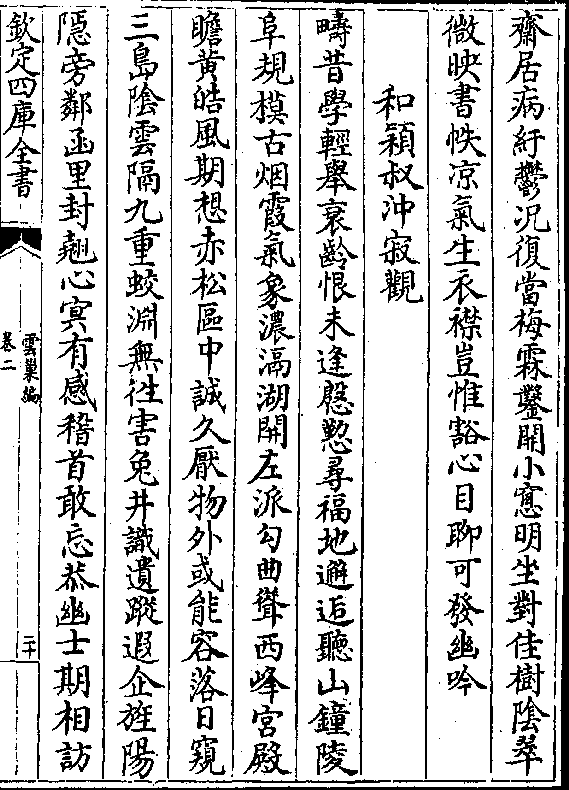 齋居病紆鬱况復當梅霖鑿開小窻明坐對佳樹陰翠
微映書帙凉氣生衣襟豈惟豁心目聊可發幽吟
和穎叔沖寂觀
疇昔學輕舉衰齡恨未逢慇懃尋福地邂逅聽山鐘陵
阜規模古烟霞氣象濃滆湖開左派勾曲聳西峰宮殿
瞻黄皓風期想赤松區中誠久厭物外或能容落日窺
三島陰雲隔九重蛟淵無徃害兔井識遺蹤遐企旌陽
隱旁鄰函里封翹心冥有感稽首敢忘恭幽士期相訪
欽定四庫全書
雲巢編
卷二
二十